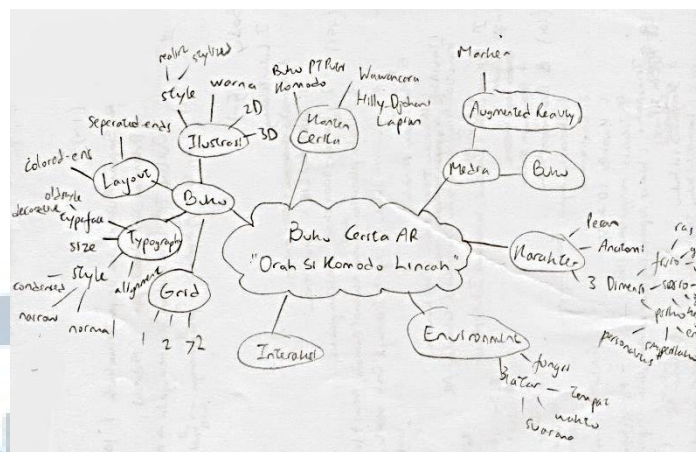 Buku Cerita AR
"Orah Si Komodo Lincah"
Buku
Ilustrasi
style
realis
stylized
warna
2D
3D
Layout
Seperated-ends
Colored-ens
Typography
typeface
oldstyle
decorative
size
style
condensed
narrow
normal
alignment
Grid
1
2
>2
Konten
Cerita
Buku PT Putri
Komodo
Wawancara
Hilly Djohani
Lapian
Media
Augmented Reality
Marker
Buku
Karakter
Peran
Anatomi
3 Dimensi
ras
fisio
sosio
psiko
personalitas
Environment
fungsi
3 latar
tempat
waktu
suasana
Interaksi